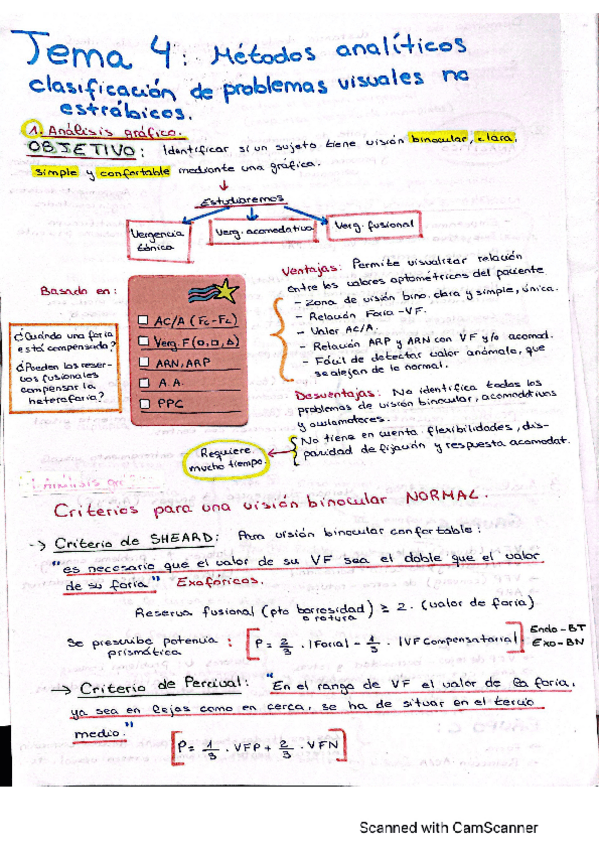 Tema 4: Métodos analíticos
clasificación de problemas visuales no
estrábicos.
1. Análisis gráfico.
OBJETIVO: Identificar si un sujeto tiene visión binocular, clara,
simple y confortable mediante una gráfica.
Estudiaremos
Vergencia
tónica
Verg. acomodativa
Verg. fusional
Basado en:
¿Cuándo una foria
está compensada?
¿Pueden las reser-
vas fusionales
compensar la
heteroforia?
AC/A (FC-FL)
Verg. F (O, □, Δ)
ARN, ARP
A.A.
PPC
Ventajas: Permite visualizar relación
entre los valores optométricos del paciente
- Zona de visión bino. clara y simple, única.
- Relación Foria-VF.
- Valor AC/A.
- Relación ARP y ARN con VF y/o acomod.
- Fácil de detectar valor anómalo, que
se alejan de lo normal.
Desventajas: No identifica todos los
problemas de visión binocular, acomodativos
y oculomotores.
No tiene en cuenta flexibilidades, dis-
paridad de fijación y respuesta acomodat.
Requiere
mucho tiempo
Criterios para una visión binocular NORMAL.
-> Criterio de SHEARD: Para visión binocular confortable:
"es necesario que el valor de su VF sea el doble que el valor
de su foria" Exofóricos.
Reserva fusional (pto borrosidad) ≥ 2. (valor de foria)
o rotura
Se prescribe potencia
prismática : [P = 2/3 · |Foria| - 1/3 · |VF Compensatoria|] Endo-BT
Exo-BN
-> Criterio de Percival: "En el rango de VF el valor de la foria,
ya sea en lejos como en cerca, se ha de situar en el tercio
medio."
[P = 1/3 · VFP + 2/3 · VFN]
Scanned with CamScanner